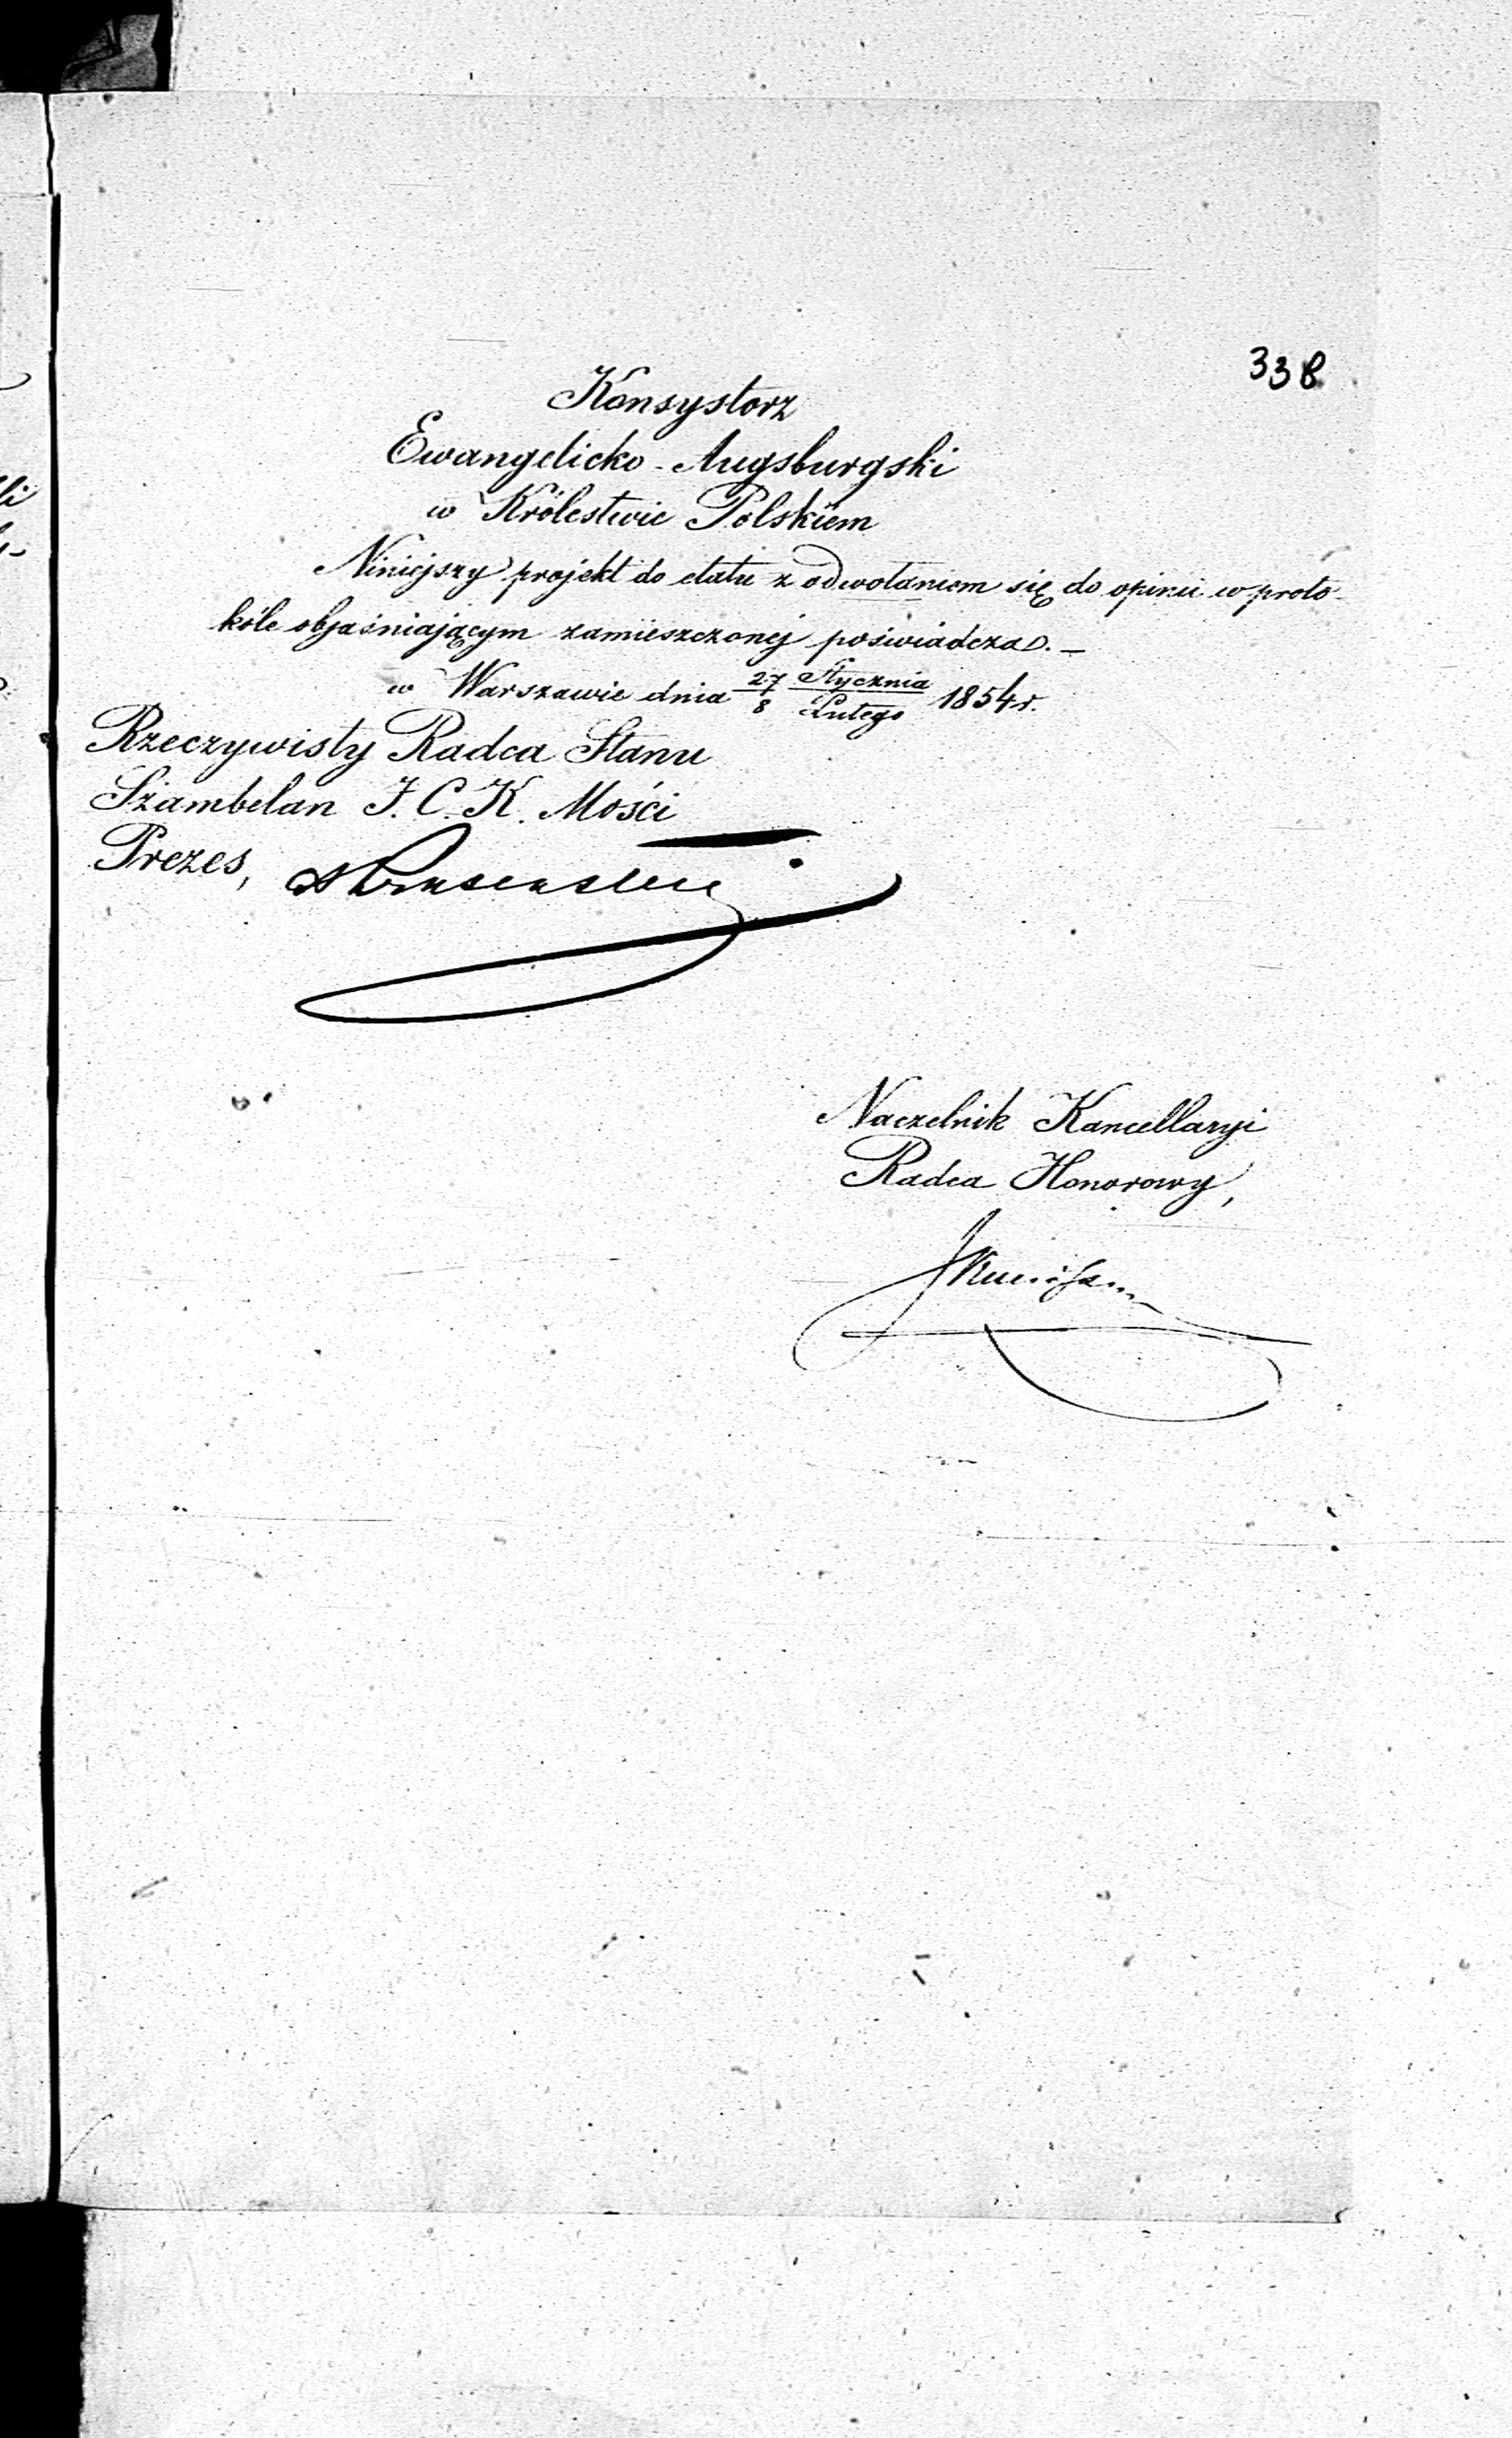 338
Konsystorz
Ewangelicko-Augsburgski
w Królestwie Polskiem
Niniejszy projekt do etatu z odwołaniem się do opinii w proto-
kóle objaśniającym zamieszczonej poświadcza. –
w Warszawie dnia 27 Stycznia / 8 Lutego 1854 r.
Rzeczywisty Radca Stanu
Szambelan J. C. K. Mości
Prezes,
Naczelnik Kancellaryi
Radca Honorowy,